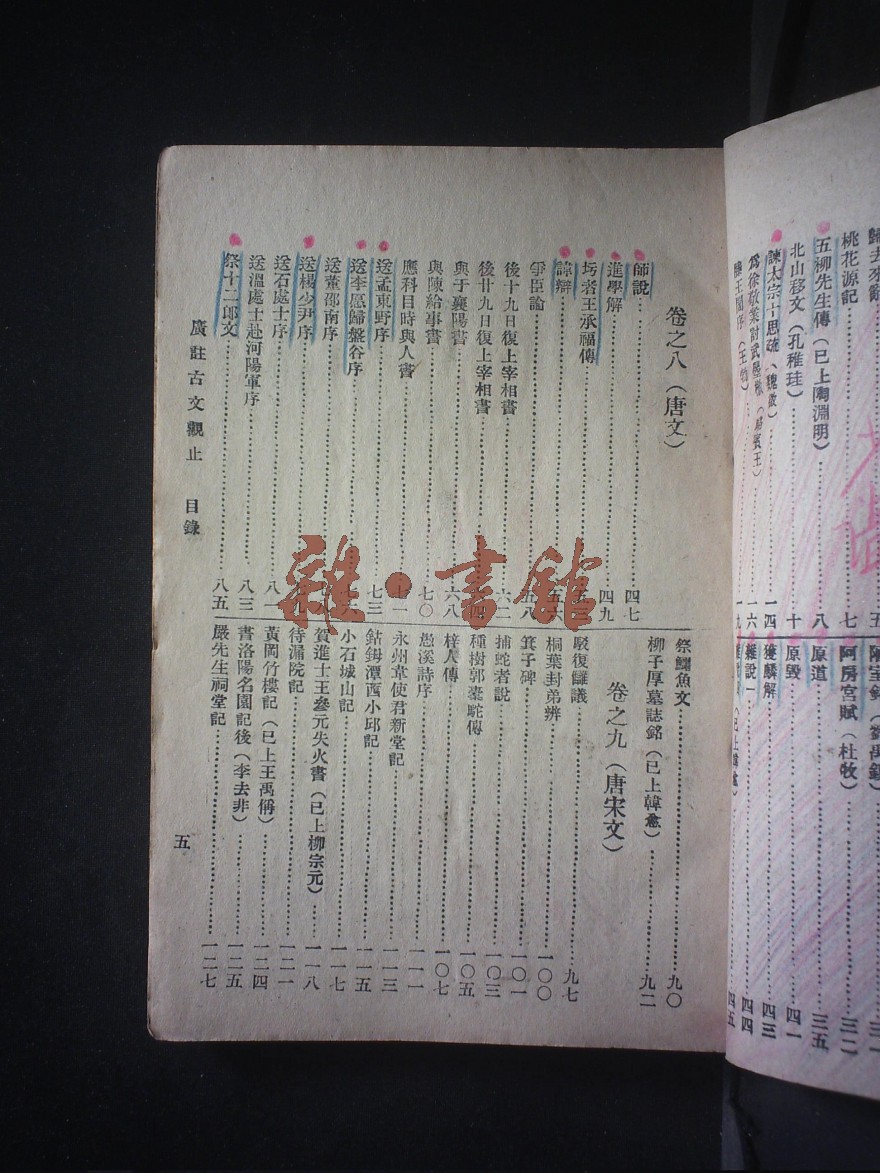 歸去來辭……五
桃花源記……七
五柳先生傳（已上陶淵明）……八
北山移文（孔稚珪）……十
諫太宗十思疏（魏徵）……一四
為徐敬業討武曌檄（駱賓王）……一六
滕王閣序（王勃）……一九
陋室銘（劉禹錫）……三一
阿房宮賦（杜牧）……三二
原道……三五
原毀……四一
獲麟解……四三
雜說一……四四
（已上韓愈）……四五
卷之八（唐文）
師說……四七
進學解……四九
圬者王承福傳……
諱辯……五六
爭臣論……五八
後十九日復上宰相書……六二
後廿九日復上宰相書……六四
與于襄陽書……六八
與陳給事書……七〇
應科目時與人書……七一
送孟東野序……七三
送李愿歸盤谷序……
送董邵南序……
送楊少尹序……
送石處士序……八一
送溫處士赴河陽軍序……八三
祭十二郎文……八五
祭鱷魚文……九〇
柳子厚墓誌銘（已上韓愈）……九二
卷之九（唐宋文）
駁復讎議……九七
桐葉封弟辨……一〇〇
箕子碑……一〇一
捕蛇者說……一〇三
種樹郭橐駝傳……一〇五
梓人傳……一〇七
愚溪詩序……一一一
永州韋使君新堂記……一一三
鈷鉧潭西小邱記……一一五
小石城山記……一一七
賀進士王參元失火書（已上柳宗元）……一一八
待漏院記……一二一
黃岡竹樓記（已上王禹偁）……一二四
書洛陽名園記後（李去非）……一二五
嚴先生祠堂記……一二七
廣註古文觀止　目錄
五
雜·書館